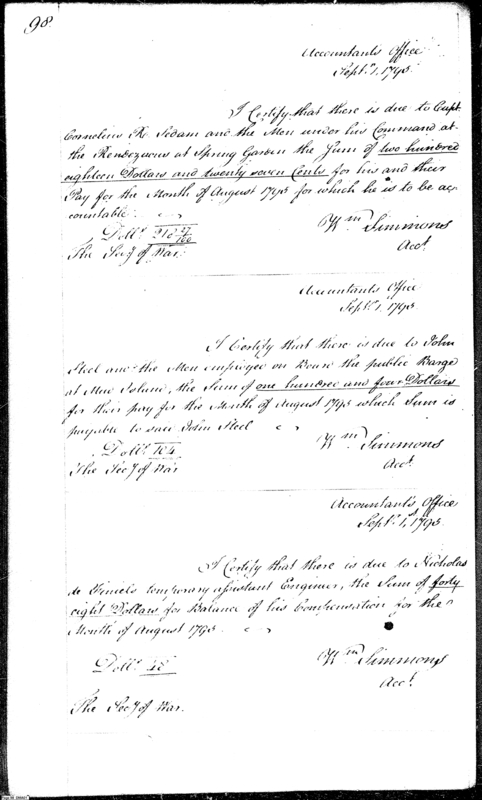 98
Accountant's Office
Sept. 1. 1795
I Certify that there is due to Capt.
Cornelius R Sedam and the Men under his Command at
the Rendezvous at Spring Garden the Sum of two hundred
eighteen Dollars and twenty seven Cents for his and their
Pay for the Month of August 1795 for which he is to be ac
countable
Dolls. 218 27/100
The Secy of War
Wm Simmons
Acct.
Accountants Office
Sept. 1. 1795
I Certify that there is due to John
Steel and the Men employed on Board the public Barge
at Mud Island, the Sum of one hundred and four Dollars
for their pay for the Month of August 1795 which Sum is
payable to said John Steel
Dolls. 104
The Secy of War
Wm Simmons
Acct.
Accountant's Office
Sept. 1st 1795
I Certify that there is due to Nicholas
de Finiels temporary assistant Engineer, the Sum of forty
eight Dollars for Balance of his Compensation for the
Month of August 1795
Dolls. 48
Wm Simmons
Acct.
The Secy of War.